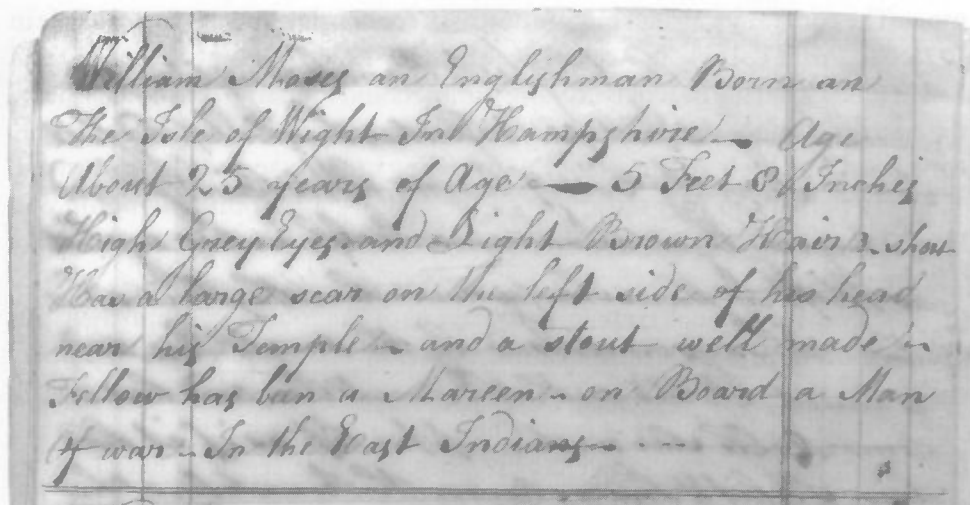 William Moses an Englishman Born an
The Isle of Wight In Hampshire — Age
About 25 years of Age — 5 Feet 8 Inches
High Grey Eyes and Light Brown Hair - short
Has a large scar on the left side of his head
near his Temple - and a stout well made -
Fellow has ben a Mareen - on Board a Man
of war - In the East Indians - - -